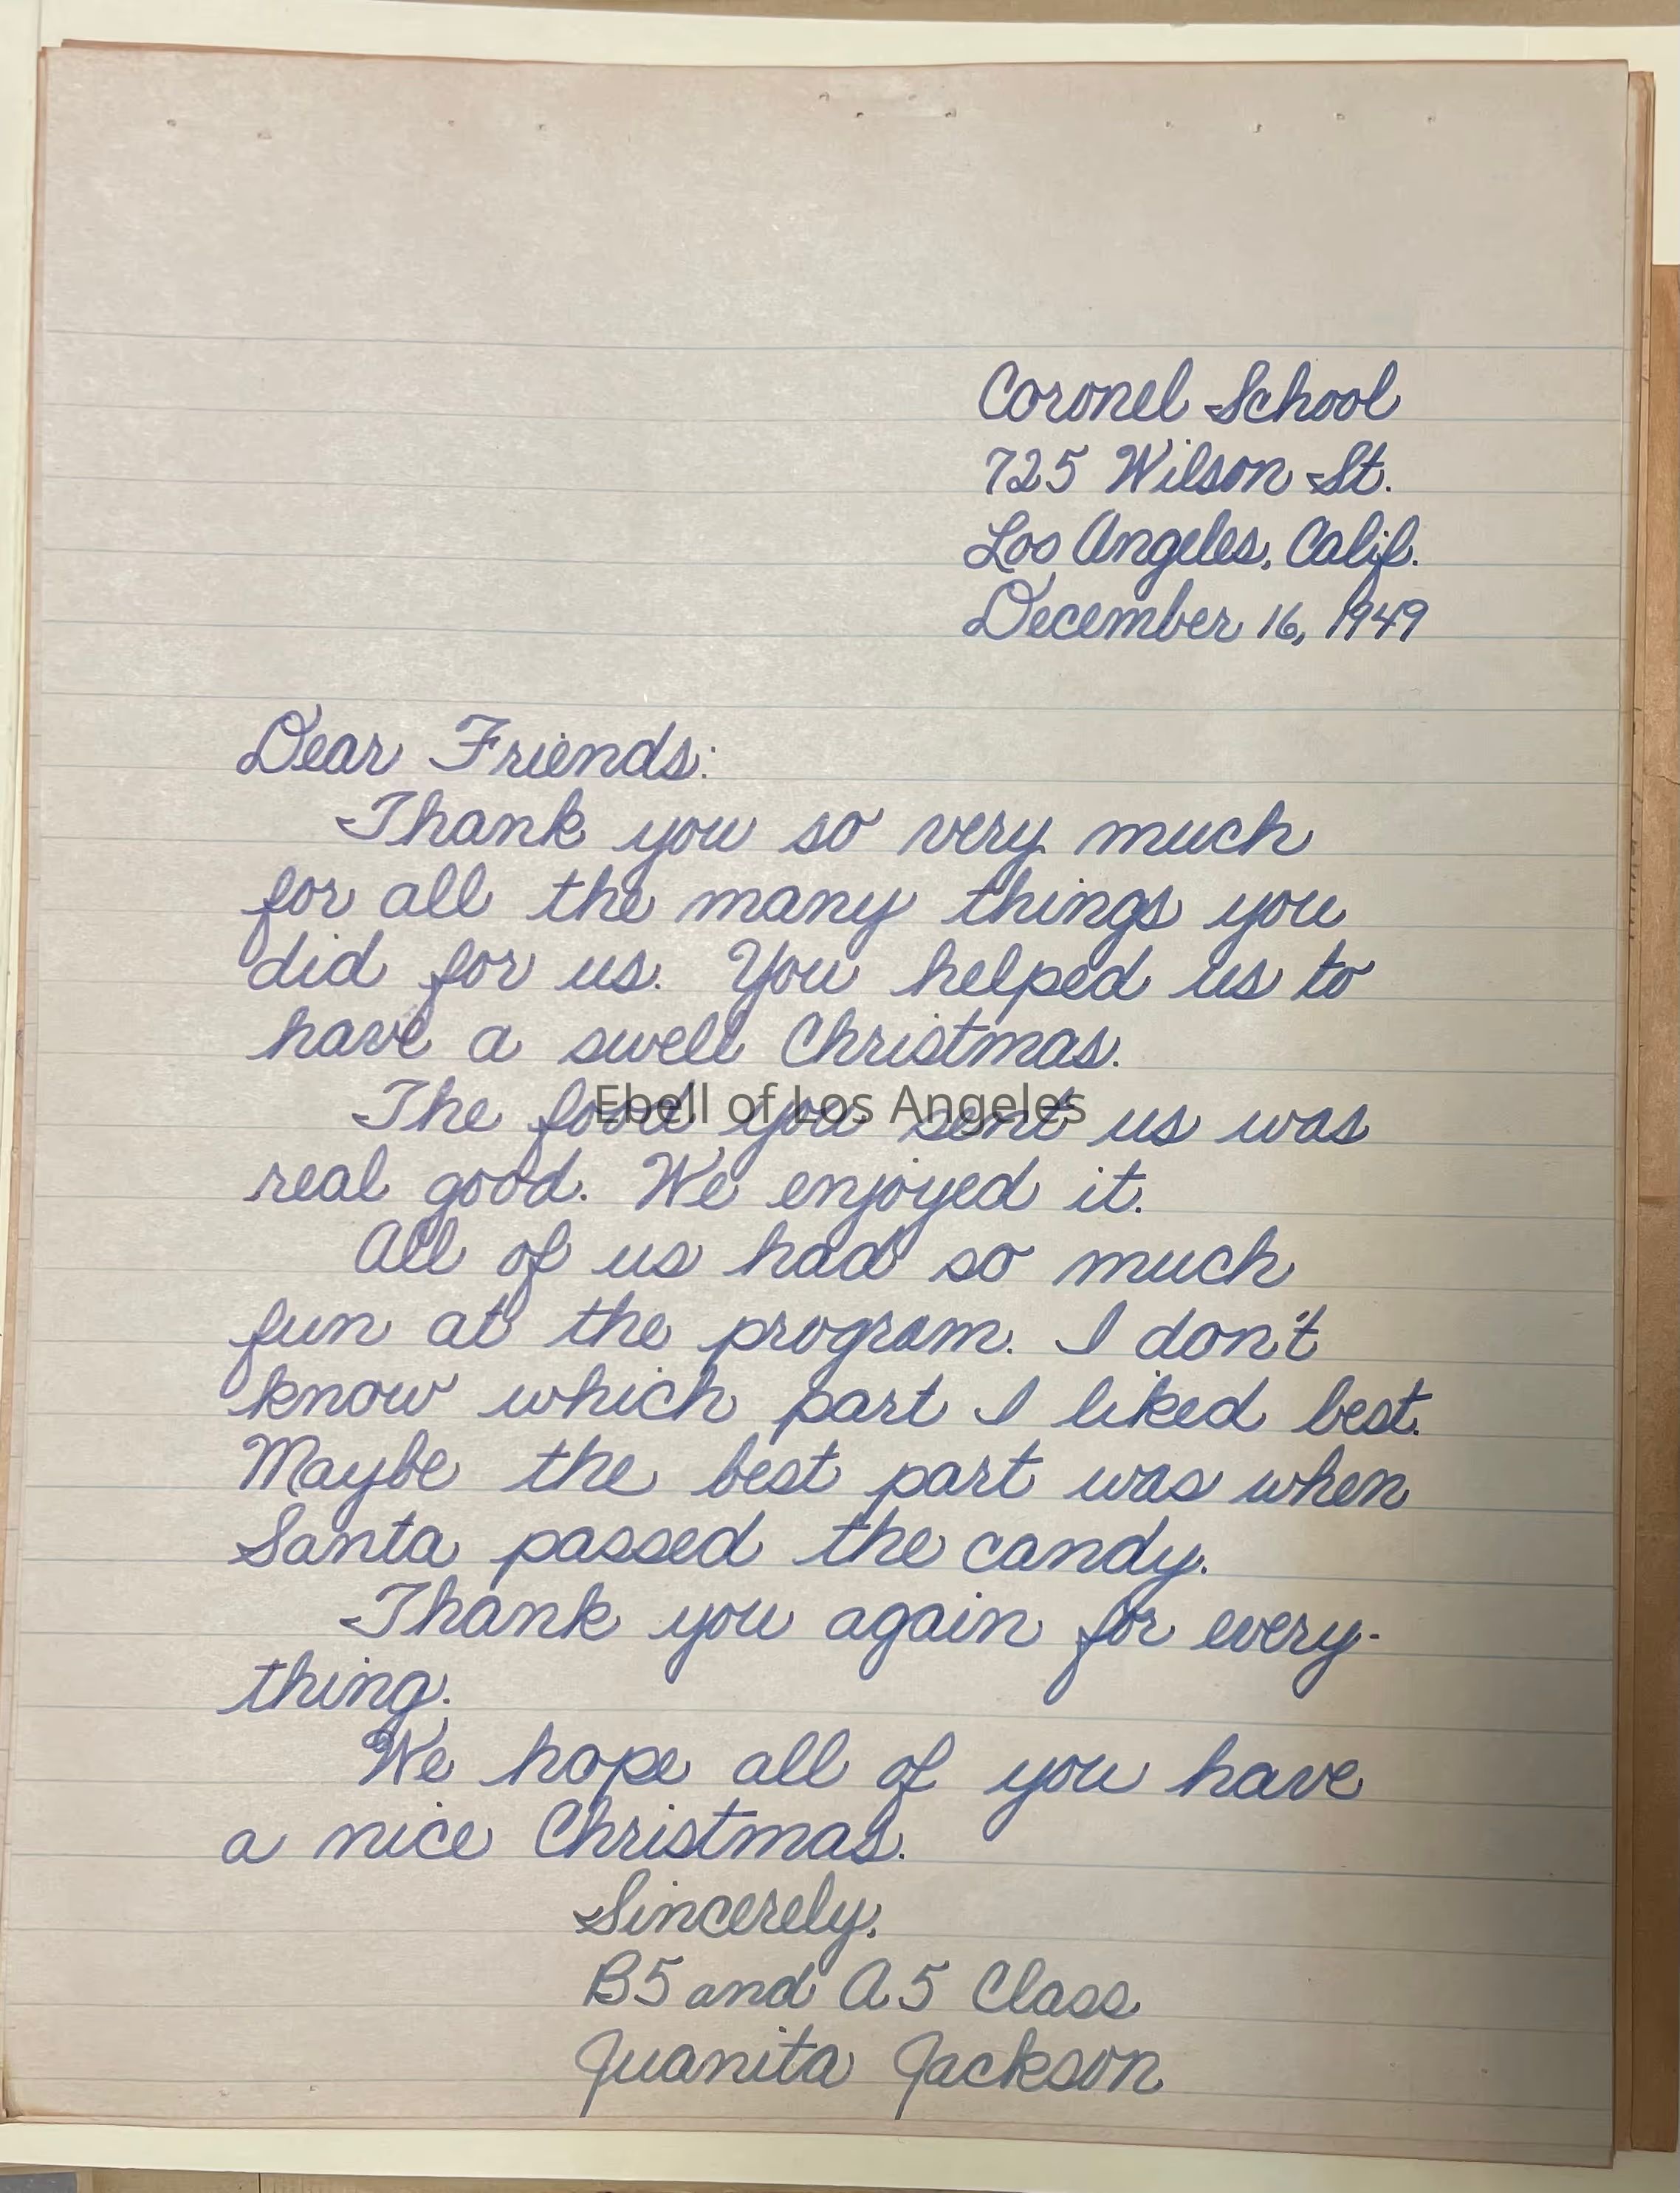 Coronel School
725 Wilson St.
Los Angeles, Calif.
December 16, 1949
Dear Friends:
Thank you so very much
for all the many things you
did for us. You helped us to
have a swell Christmas.
Ebell of Los Angeles
The food you sent us was
real good. We enjoyed it.
All of us had so much
fun at the program. I don't
know which part I liked best.
Maybe the best part was when
Santa passed the candy.
Thank you again for every-
thing.
We hope all of you have
a nice Christmas.
Sincerely,
B5 and A5 Class
Juanita Jackson